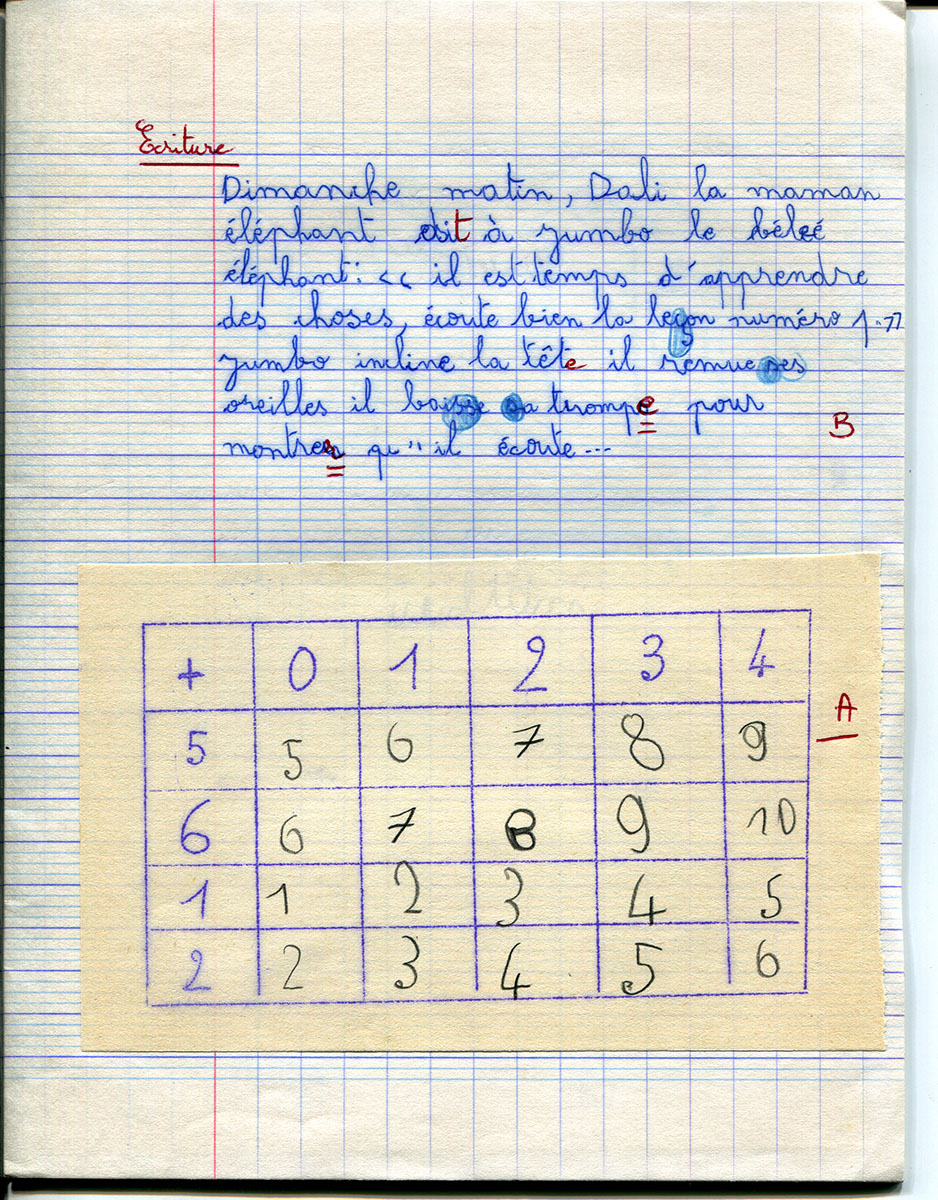 Ecriture
Dimanche matin, Dali la maman
éléphant dit à jumbo le bébé
éléphant: << il est temps d'apprendre
des choses, écoute bien la leçon numéro 1->>
jumbo incline la tête il remue ses
oreilles il baisse sa trompe pour
montrer qu"il écoute...
B
+ 0 1 2 3 4
A
5 5 6 7 8 9
6 6 7 8 9 10
1 1 2 3 4 5
2 2 3 4 5 6